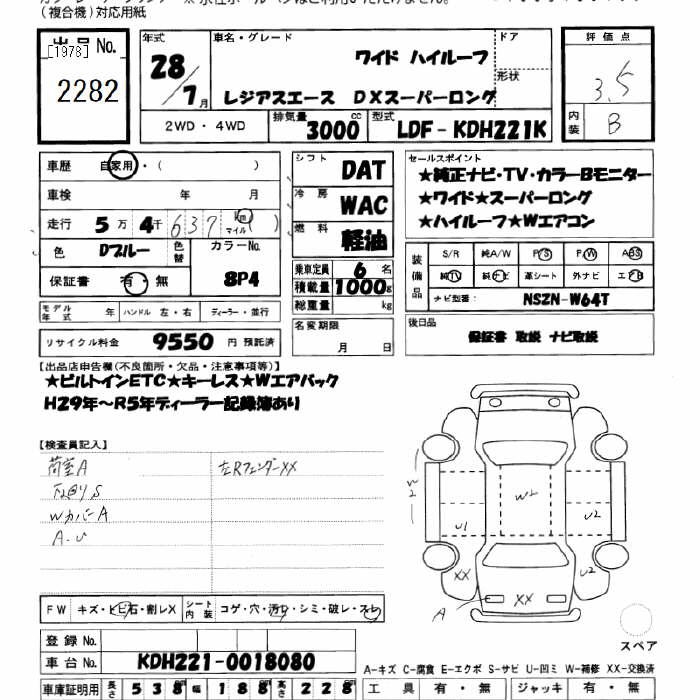 (複合機)対応用紙
出品 No.
[1978]
2282
年式
28/7月
車名・グレード
ワイド ハイルーフ
レジアスエース DXスーパーロング
ドア
形状
評価点
3.5
内装
B
2WD・4WD
排気量
3000cc
型式
LDF-KDH221K
車歴 自家用・( )
車検 年 月
走行 5万 4千 637 km マイル ( )
色 Dブルー 色替 カラーNo. 8P4
保証書 有・無
シフト DAT
冷房 WAC
燃料 軽油
乗車定員 6名
積載量 1000
総重量 kg
セールスポイント
★純正ナビ・TV・カラーBモニター
★ワイド★スーパーロング
★ハイルーフ★Wエアコン
装備品 S/R 純A/W P/S P/W ABS
純TV 純ナビ 革シート 外ナビ エアB
ナビ型番: NSZN-W64T
モデル年式 年 ハンドル 左・右 ディーラー・並行
リサイクル料金 9550 円 預託済
名変期限
月 日
後日品
保証書 取説 ナビ取説
【出品店申告欄(不良箇所・欠品・注意事項等)】
★ビルトインETC★キーレス★Wエアバック
H29年〜R5年ディーラー記録簿あり
【検査員記入】
荷室A
左Rフェンダーxx
下回りS
WカバーA
A・U
W2
U1
W2
U2
U2
XX
XX
A
スペア
FW キズ・ヒビ石・割レX シート内装 コゲ・穴・汚レ・シミ・破レ・スレ
登録 No.
車台 No. KDH221-0018080
A-キズ C-腐食 E-エクボ S-サビ U-凹ミ W-補修 XX-交換済
車庫証明用 長さ 538 幅 188 高さ 228
工具 有・無 ジャッキ 有・無